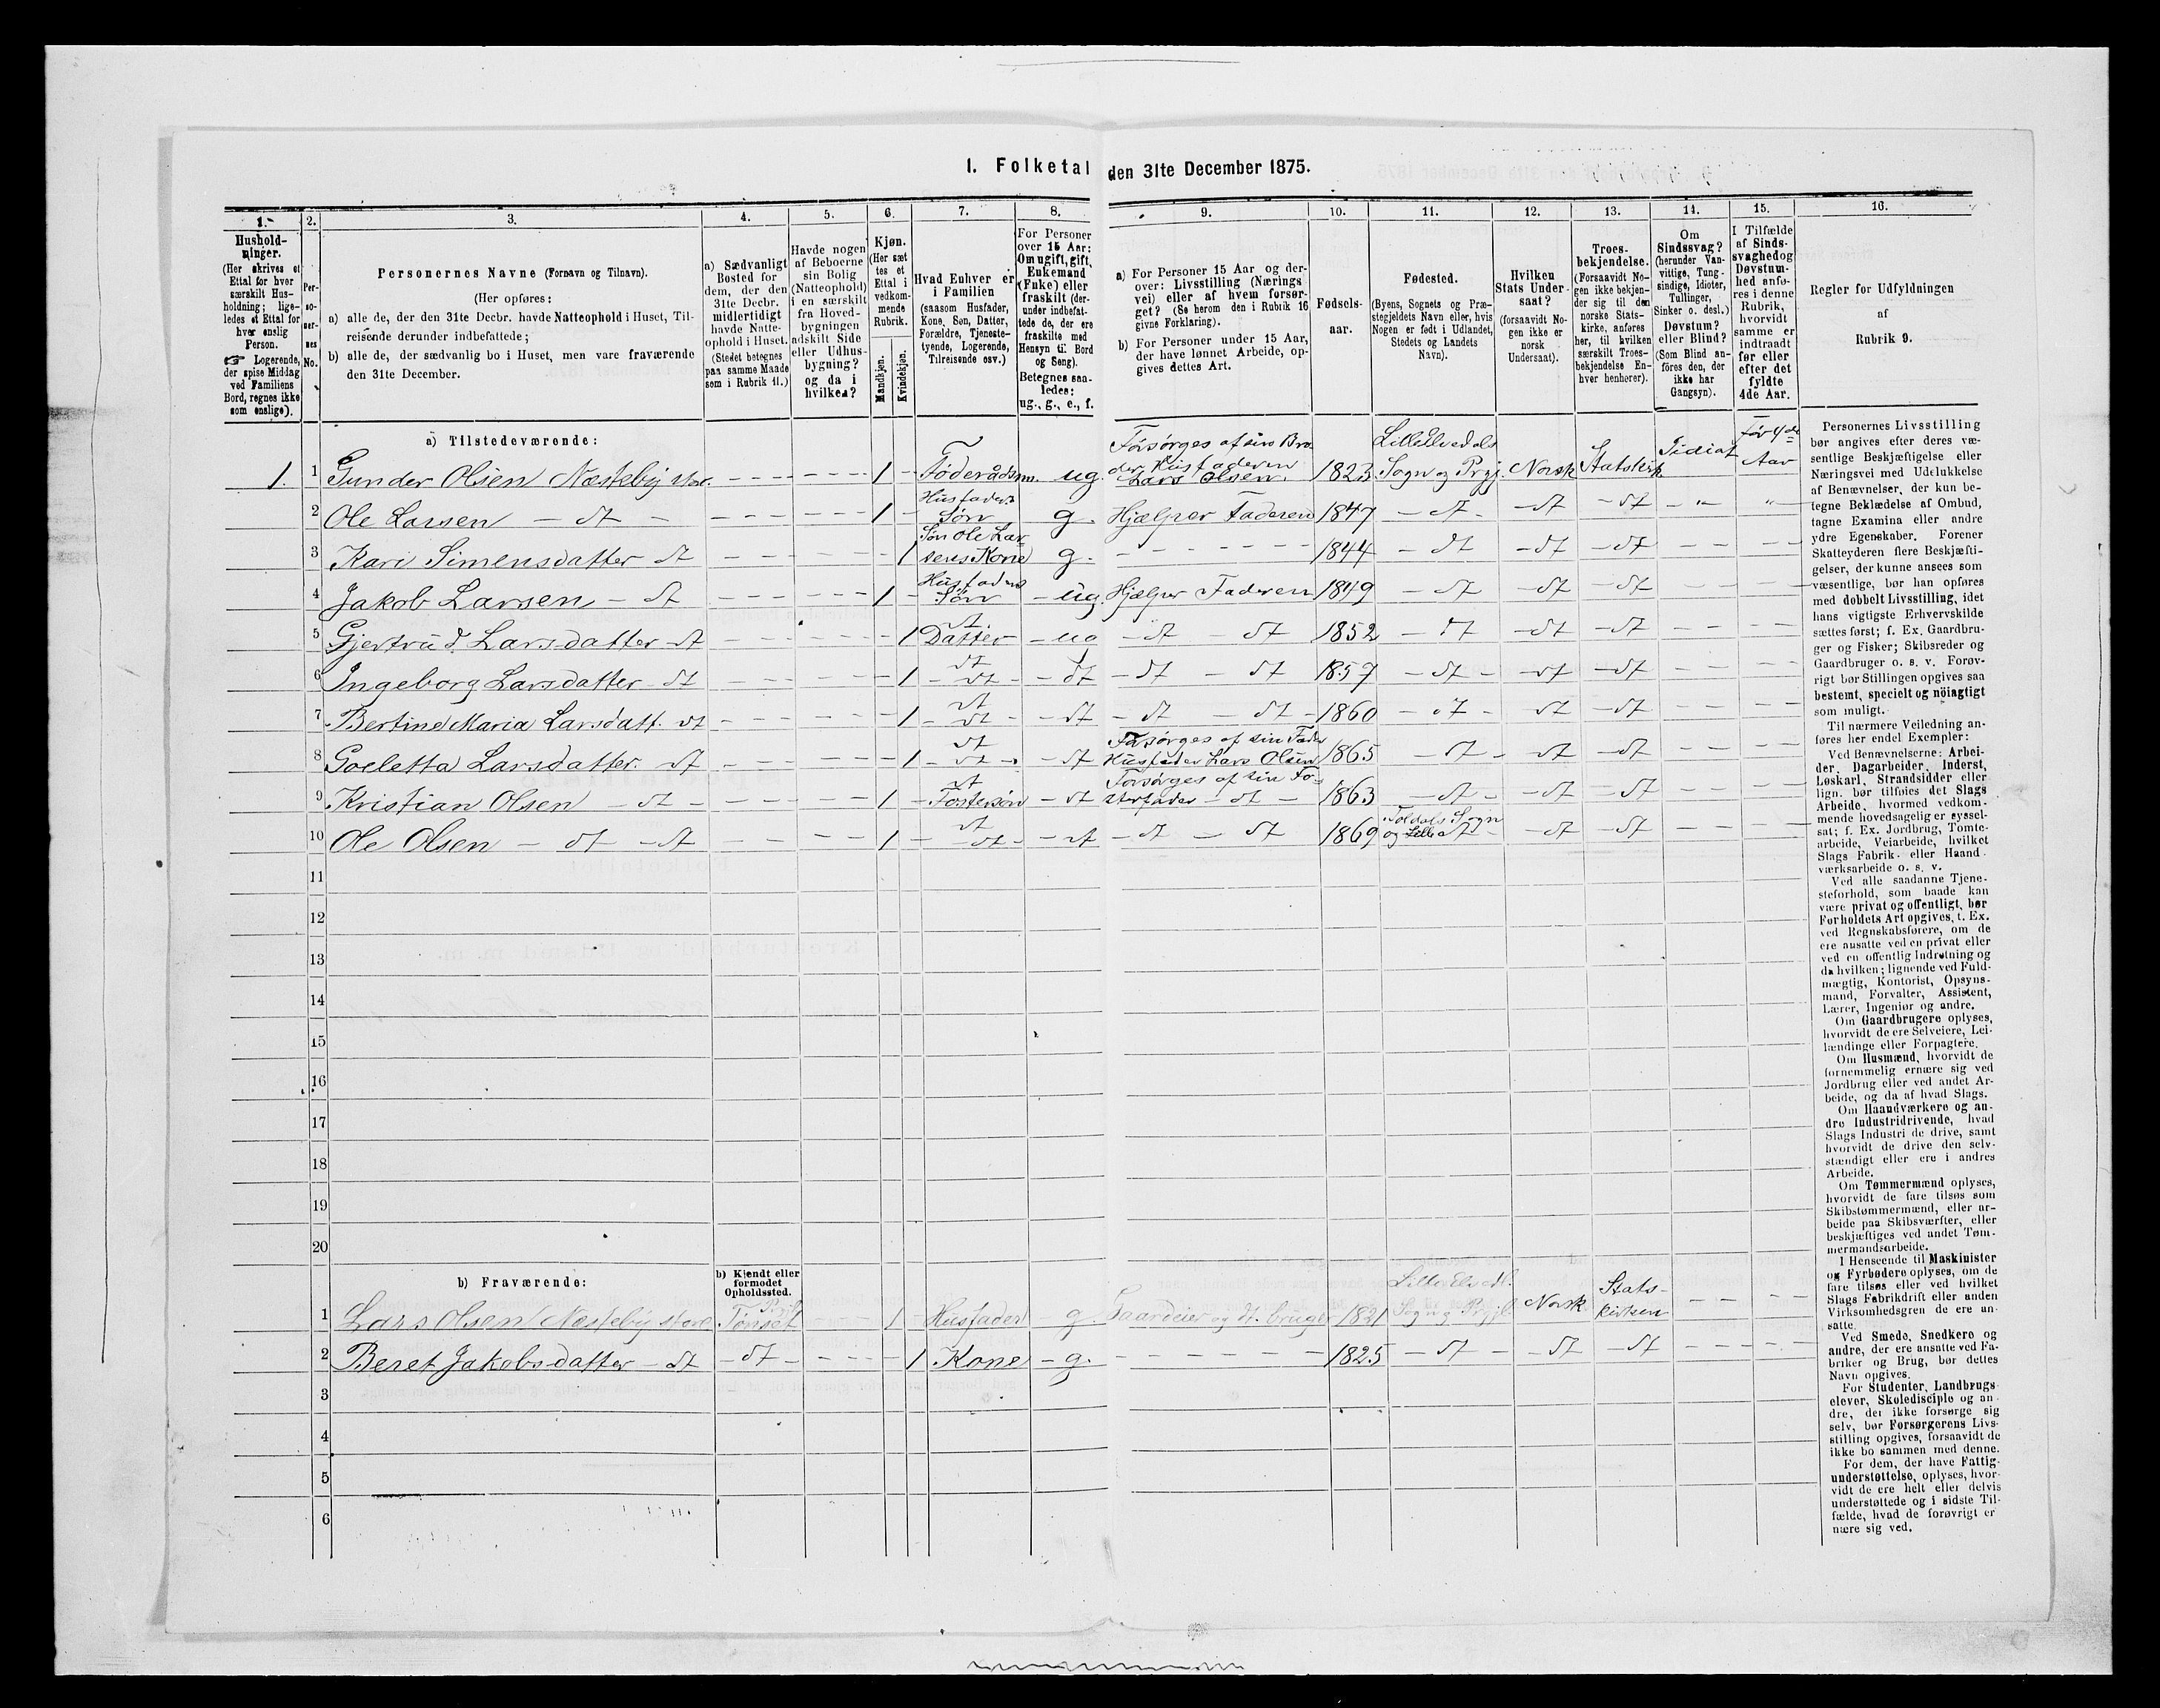 I. Folketal den 31te December 1875.
1. 2. 3. 4. 5. 6. 7. 8. 9. 10. 11. 12. 13. 14. 15. 16.
Hushold-
ninger.
(Her skrives et
Ettal for hver
særskilt Hus-
holdning; lige-
ledes et Ettal for
hver enslig
Person.
☞ Logerende,
der spise Middag
ved Familiens
Bord, regnes ikke
som enslige).
Per-
so-
ner-
nes
No.
Personernes Navne (Fornavn og Tilnavn).
(Her opføres:
a) alle de, der den 31te Decbr. havde Natteophold i Huset, Til-
reisende derunder indbefattede;
b) alle de, der sædvanlig bo i Huset, men vare fraværende
den 31te December.
a) Sædvanligt
Bosted for
dem, der den
31te Decbr.
midlertidigt
havde Natte-
ophold i Huset.
(Stedet betegnes
paa samme Maade
som i Rubrik 11.)
Havde nogen
af Beboerne
sin Bolig
(Natteophold)
i en særskilt
fra Hoved-
bygningen
adskilt Side
eller Udhus-
bygning?
og da i
hvilken?
Kjøn.
(Her sæt
tes et
Ettal i
vedkom-
mende
Rubrik.
Mandkjøn.
Kvindekjøn.
Hvad Enhver er
i Familien
(saasom Husfader,
Kone, Søn, Datter,
Forældre, Tjeneste-
tyende, Logerende,
Tilreisende osv.)
For Personer
over 15 Aar:
Om ugift, gift,
Enkemand
(Enke) eller
fraskilt (der-
under indbefat-
tede de, der ere
fraskilte med
Hensyn til Bord
og Seng).
Betegnes saa-
ledes:
ug., g., e., f.
a) For Personer 15 Aar og der-
over: Livsstilling (Nærings
vei) eller af hvem forsør-
get? (Se herom den i Rubrik 16
givne Forklaring).
b) For Personer under 15 Aar,
der have lønnet Arbeide, op-
gives dettes Art.
Fødsels-
aar.
Fødested.
(Byens, Sognets og Præ-
stegjeldets Navn eller, hvis
Nogen er født i Udlandet,
Stedets og Landets
Navn).
Hvilken
Stats Under-
saat?
(forsaavidt No-
gen ikke er
norsk
Undersaat).
Troes-
bekjendelse.
(Forsaavidt No-
gen ikke bekjen-
der sig til den
norske Stats-
kirke, anføres
her, til hvilken
særskilt Troes-
bekjendelse En-
hver henhører).
Om
Sindssvag?
(herunder Van-
vittige, Tung-
sindige, Idioter,
Tullinger,
Sinker o. desl.)
Døvstum?
eller Blind?
(Som Blind an-
föres den, der
ikke har
Gangsyn).
I Tilfælde
af Sinds-
svaghed og
Døvstum-
hed anfø-
res i denne
Rubrik,
hvorvidt
samme er
indtraadt
før eller
efter det
fyldte
4de Aar.
Regler for Udfyldningen
af
Rubrik 9.
a) Tilstedeværende:
1. 1 Gunder Olsen Næsteby store. 1 Föderådsm. ug. Försörges af sin Bro der Husfaderen Lars Olsen. 1823 LilleElvedals Sogn og Prgj. Norsk Statskirk Idiot för 4de Aar
2 Ole Larsen dt 1 Husfaders Sön g. Hjælper Faderen 1847 dt dt dt " "
3 Kari Simensdatter dt 1 Sön Ole Lar sens Kone g. 1844 dt dt dt
4 Jakob Larsen dt 1 Husfaders Sön ug. Hjælper Faderen 1849 dt dt dt
5 Gjertrud Larsdatter dt 1 dt. Datter ug dt dt 1852 dt dt dt
6 Ingeborg Larsdatter dt 1 dt dt dt dt dt 1857 dt dt dt
7 Bertine Maria Larsdatt. dt 1 dt dt dt dt dt 1860 dt dt dt
8 Goeletta Larsdatter. dt 1 dt dt dt Försörges af sin Fader Husfader Lars Olsen 1865 dt dt dt
9 Kristian Olsen dt 1 dt Fostersön dt Försörges af sin Fo= sterfader dt 1863 dt dt dt
10 Ole Olsen dt dt 1 dt dt dt dt dt 1869 Foldals Sogn og Lille dt dt dt
11
12
13
14
15
16
17
18
19
20
b) Fraværende:
b) Kjendt eller
formodet
Opholdssted.
1 Lars Olsen Næsteby store Tönset Prgj. 1 Husfader g Gaardeier og dt. bruger 1821 Lille Elvedl. Sogn og Prgj. Norsk Stats- kirken
2 Beret Jakobsdatter dt dt 1 Kone g. 1825 dt dt dt
3
4
5
6
Personernes Livsstilling
bør angives efter deres væ-
sentlige Beskjæftigelse eller
Næringsvei med Udelukkelse
af Benævnelser, der kun be-
tegne Beklædelse af Ombud,
tagne Examina eller andre
ydre Egenskaber. Forener
Skatteyderen flere Beskjæfti-
gelser, der kunne ansees som
væsentlige, bør han opføres
med dobbelt Livsstilling, idet
hans vigtigste Erhvervskilde
sættes først; f. Ex. Gaardbru-
ger og Fisker; Skibsreder og
Gaardbruger o. s. v. Forøv-
rigt bør Stillingen opgives saa
bestemt, specielt og nöiagtigt
som muligt.
Til nærmere Veiledning an-
føres her endel Exempler:
Ved Benævnelserne: Arbei-
der, Dagarbeider, Inderst,
Løskarl, Strandsidder eller
lign. bør tilføies det Slags
Arbeide, hvormed vedkom-
mende hovedsagelig er syssel-
sat; f. Ex. Jordbrug, Tomte-
arbeide, Veiarbeide, hvilket
Slags Fabrik- eller Haand-
værksarbeide o. s. v.
Ved alle saadanne Tjene-
steforhold, som baade kan
være privat og offentligt, bør
Forholdets Art opgives, t. Ex.
ved Regnskabsførere, om de
ere ansatte ved en privat eller
ved en offentlig Indretning og
da hvilken; lignende ved Fuld-
mægtig, Kontorist, Opsyns-
mand, Forvalter, Assistent,
Lærer, Ingeniør og andre.
Om Gaardbrugere oplyses,
hvorvidt de ere Selveiere, Lei-
lændinge eller Forpagtere.
Om Husmænd, hvorvidt de
fornemmelig ernære sig ved
Jordbrug eller ved andet Ar-
beide, og da af hvad Slags.
Om Haandværkere og an-
dre Industridrivende, hvad
Slags Industri de drive, samt
hvorvidt de drive den selv-
stændigt eller ere i andres
Arbeide.
Om Tømmermænd oplyses,
hvorvidt de fare tilsøs som
Skibstømmermænd, eller ar-
beide paa Skibsværfter, eller
beskjæftiges ved andet Tøm-
mermandsarbeide.
I Henseende til Maskinister
og Fyrbødere oplyses, om de
fare tilsøs eller ved hvilket
Slags Fabrikdrift eller anden
Virksomhedsgren de ere an-
satte.
Ved Smede, Snedkere og
andre, der ere ansatte ved Fa-
briker og Brug, bør dettes
Navn opgives.
For Studenter, Landbrugs-
elever, Skoledisciple og an-
dre, der ikke forsørge sig
selv, bør Forsørgerens Livs-
stilling opgives, forsaavidt de
ikke bo sammen med denne.
For dem, der have Fattig-
understøttelse, oplyses, hvor-
vidt de ere helt eller delvis
understøttede og i sidste Til-
fælde, hvad de forøvrigt er
nære sig ved.